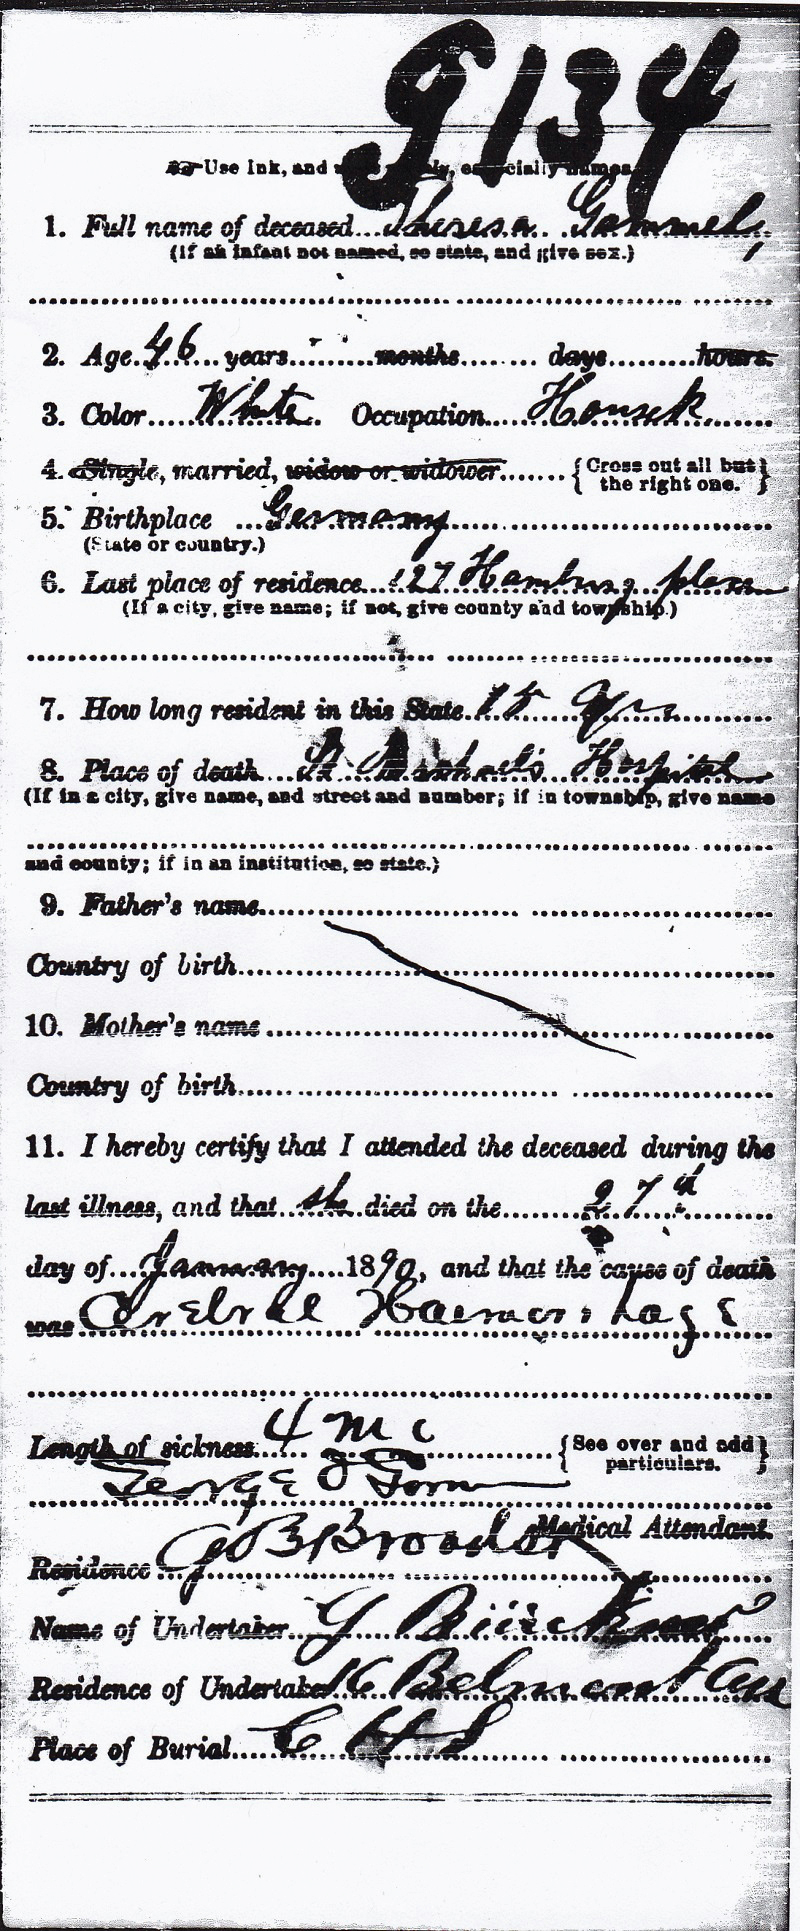 G134
Use Ink, and especially names.
1. Full name of deceased...Theresa Gommel,
(If an infant not named, so state, and give sex.)
2. Age 46 years months days hours.
3. Color White Occupation Housek
4. Single, married, widow or widower {Cross out all but the right one.}
5. Birthplace Germany
(State or country.)
6. Last place of residence 127 Hamburg place
(If a city, give name; if not, give county and township.)
7. How long resident in this State 15 yrs
8. Place of death St Michael's Hospital
(If in a city, give name, and street and number; if in township, give name
and county; if in an institution, so state.)
9. Father's name
Country of birth
10. Mother's name
Country of birth
11. I hereby certify that I attended the deceased during the
last illness, and that she died on the 27th
day of January 1890, and that the cause of death
was Cerebral Haemorrhage
Length of sickness 4 {See over and add particulars.}
George
Medical Attendant.
Residence
Name of Undertaker G
Residence of Undertaker 16 Belmont Ave
Place of Burial C H S